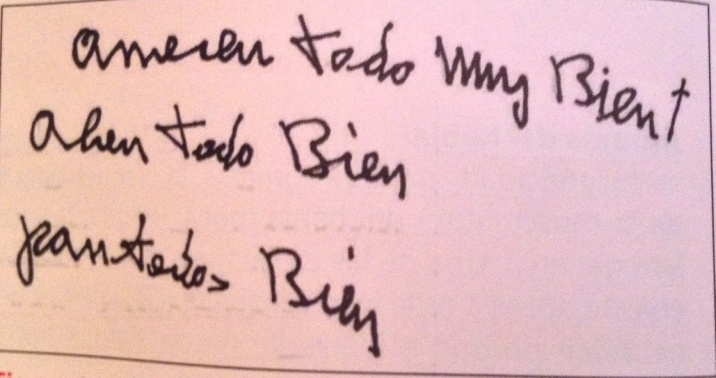 ameren todo muy Bien
ahen todo Bien
pan todos Bien